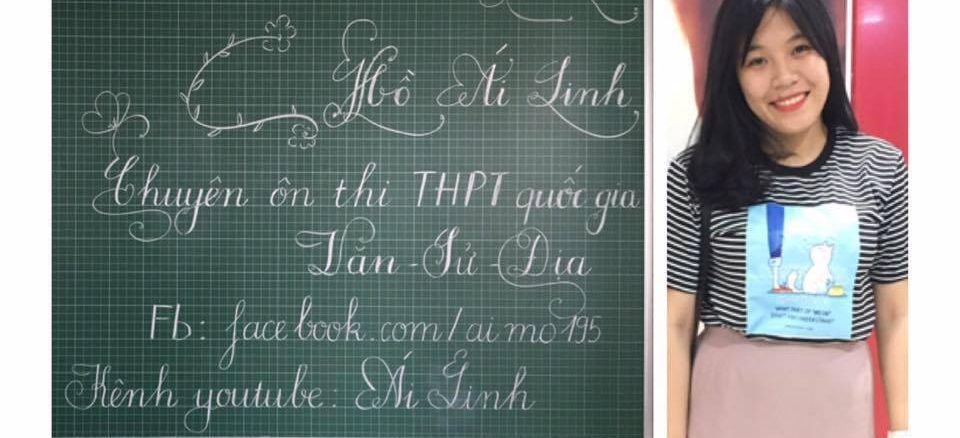 Hồ Ái Linh
Chuyên ôn thi THPT quốc gia
Văn - Sử - Địa
Fb: facebook.com/aimo195
Kênh youtube: Ái Linh
WHAT PART OF "MEOW"
DON'T YOU UNDERSTAND?